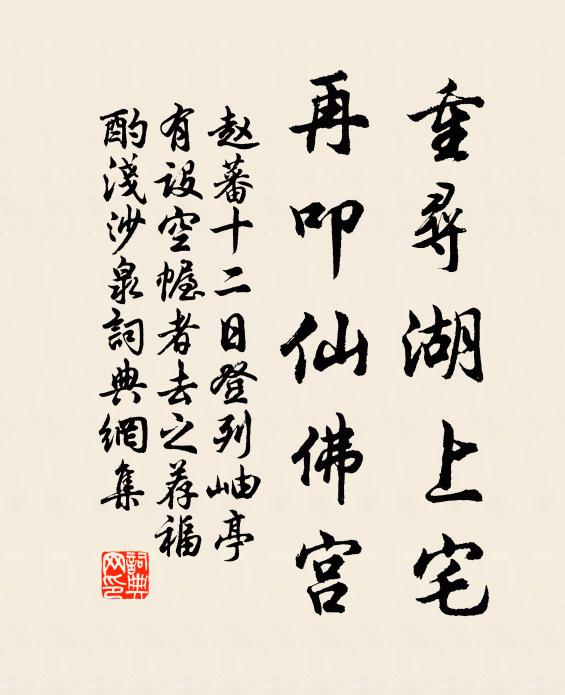 重尋湖上宅
再叩仙佛宮
赵蕃十二日登列岫亭
有設空幄者去之荐福
酌淺沙泉詞典網集
詞典网印